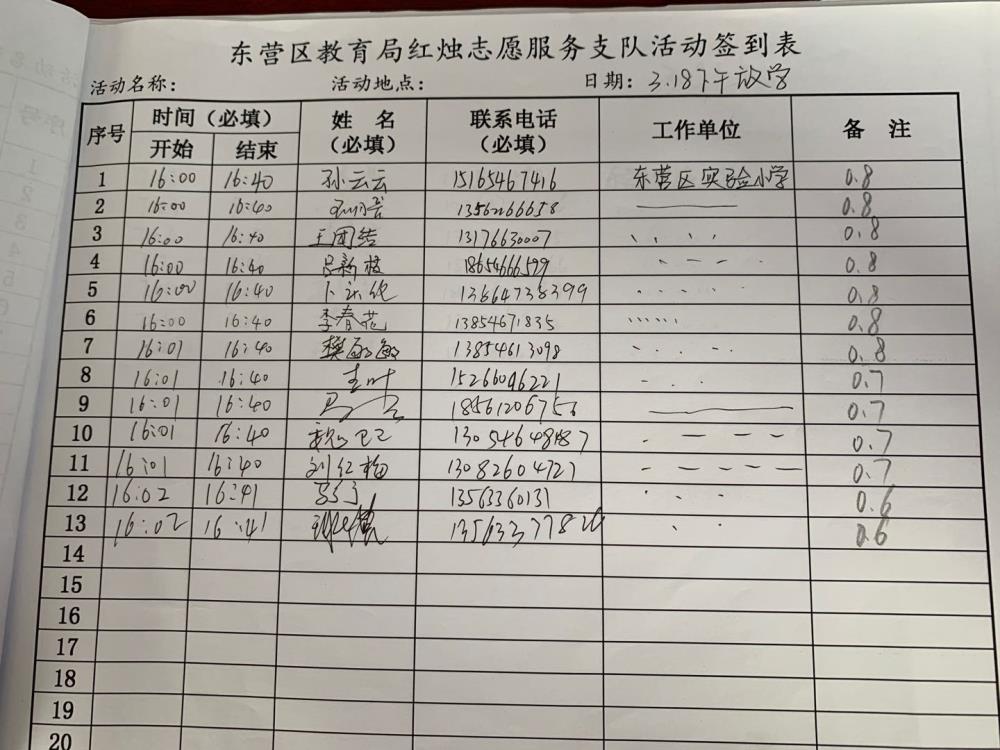 东营区教育局红烛志愿服务支队活动签到表
活动名称： 活动地点： 日期：3.18下午放学
序号 时间（必填） 姓 名（必填） 联系电话（必填） 工作单位 备 注
开始 结束
1 16:00 16:40 孙云云 15165467416 东营区实验小学 0.8
2 16:00 16:40 0.8
3 16:00 16:40 王团结 13176630007 0.8
4 16:00 16:40 吕新枝 18654666599 0.8
5 16:00 16:40 13864738399 0.8
6 16:00 16:40 李春花 13854671835 0.8
7 16:01 16:40 13854613098 0.8
8 16:01 16:40 15266046221 0.7
9 16:01 16:40 0.7
10 16:01 16:40 0.7
11 16:01 16:40 刘红梅 13082604727 0.7
12 16:02 16:41 13563360131 0.6
13 16:02 16:41 0.6
14
15
16
17
18
19
20